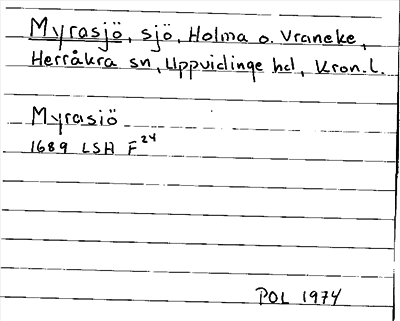 Myrasjö, sjö, Holma o. Vraneke,
Herråkra sn, Uppvidinge hd, Kron. l.
Myrasiö
1689 LSH F 24
POL 1974